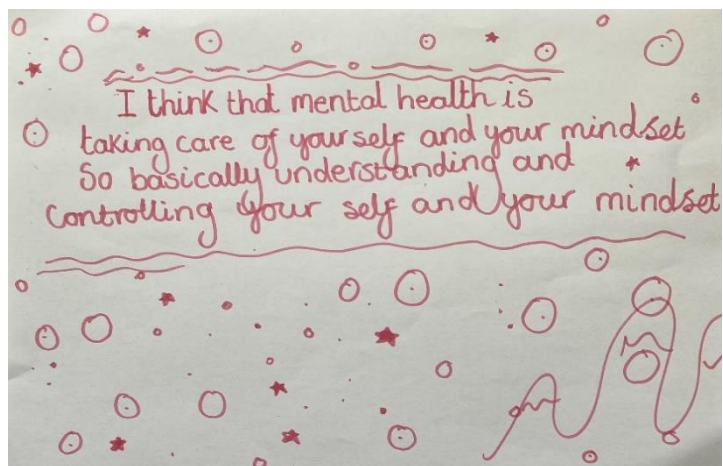 I think that mental health is
taking care of yourself and your mindset
So basically understanding and
controlling your self and your mindset